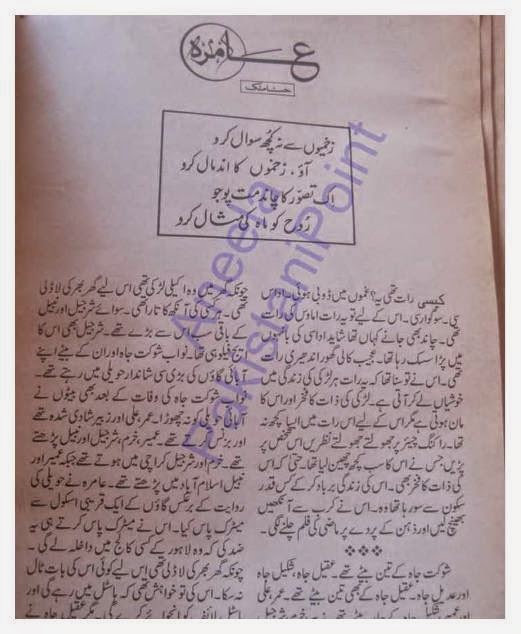 عامزہ
حسنا ملک
زخمیوں سے نہ کچھ سوال کرو
آؤ، زخموں کا اندمال کرو
اک تصوّر کا چاند مت پوجو
رُوح کو ماہ کی مثال کرو
کیسی رات تھی یہ؟ غموں میں ڈوبی ہوئی۔ اداس
سی۔ سوگوار سی۔ اس کے لیے تو یہ رات اماوس کی رات
تھی۔ چاند بھی جانے کہاں تھا شاید اداسی کی بانہوں
میں پڑا سسک رہا تھا۔ عجیب کالی گھور اندھیری رات
تھی۔ اس نے تو سنا تھا کہ یہ رات ہر لڑکی کی زندگی میں
خوشیاں لے کر آتی ہے۔ لڑکی کی ذات کا فخر اور اس کا
مان ہوتی ہے مگر اس کے لیے اس رات میں ایسا کچھ نہ
تھا۔ راکنگ چیئر پر جھولتے جھولتے نظریں اس شخص پر
پڑیں جس نے اس کا سب کچھ چھین لیا تھا۔ حتیٰ کہ اس
کی ذات کا فخر بھی۔ اس کی زندگی برباد کر کے کس قدر
سکون سے سو رہا تھا وہ۔ اس نے کرب سے آنکھیں
بھینچ لیں اور ذہن کے پردے پر ماضی کی فلم چلنے لگی۔
شوکت جاہ کے تین بیٹے تھے۔ عقیل جاہ، شکیل جاہ
اور عدیل جاہ۔ عقیل جاہ کے بھی تین بیٹے تھے۔ عمر، علی
چونکہ گھر میں وہ اکیلی لڑکی تھی اس لیے گھر بھر کی لاڈلی
تھی۔ ہر کسی کی آنکھ کا تارا تھی۔ سوائے شرجیل اور نبیل
کے باقی سب اس سے بڑے تھے۔ شرجیل بھی اس کا
ایج فیلو ہی تھا۔ نواب شوکت جاہ اور ان کے بیٹے اپنے
آبائی گاؤں کی بڑی سی شاندار حویلی میں رہتے تھے۔
نواب شوکت جاہ کی وفات کے بعد بھی بیٹوں نے
آبائی حویلی کو نہ چھوڑا۔ عمر، علی اور زبیر شادی شدہ تھے
اور بزنس کرتے تھے۔ عمیر، خرم، شرجیل اور نبیل پڑھتے
تھے۔ خرم اور شرجیل کراچی میں ہوتے تھے جبکہ عمیر اور
نبیل اسلام آباد میں پڑھتے تھے۔ عامرہ نے حویلی کی
روایت کے برعکس گاؤں کے ایک قریبی اسکول سے
میٹرک پاس کیا۔ اس نے میٹرک پاس کرتے ہی یہ
ضد کی کہ وہ لاہور کے کسی کالج میں داخلہ لے گی۔
چونکہ گھر بھر کی لاڈلی تھی اس لیے کوئی اس کی بات ٹال
نہ سکا۔ اس کی تو خواہش تھی کہ ہاسٹل میں رہے گی اور
Aneela
PakistaniPoint